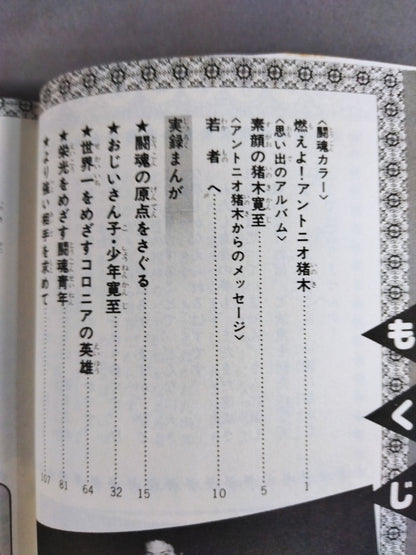 もくじ
〈闘魂カラー〉
燃えよ!アントニオ猪木 1
〈思い出のアルバム〉
素顔の猪木寛至 5
〈アントニオ猪木からのメッセージ〉
若者へ 10
実録まんが
★闘魂の原点をさぐる 15
★おじいさん子・少年寛至 32
★世界一をめざすコロニアの英雄 64
★栄光をめざす闘魂青年 81
★より強い相手を求めて 107